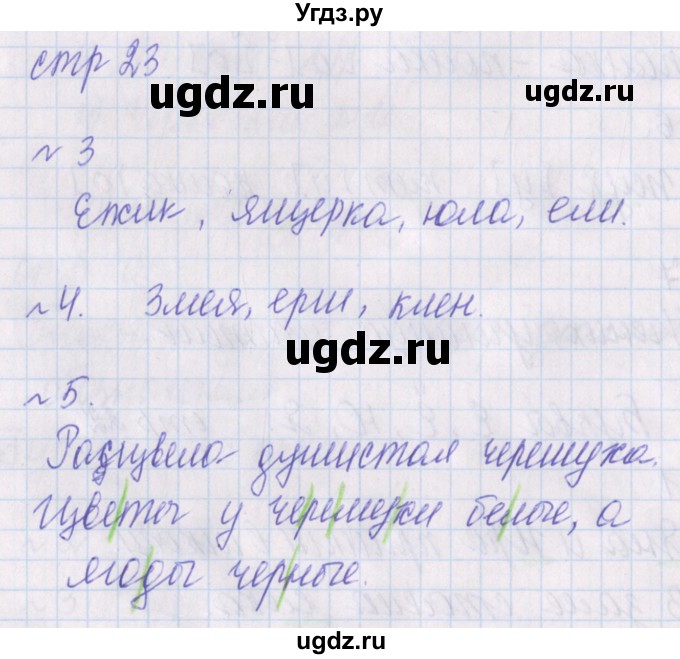 Угдз.ру
стр 23
ugdz.ru
ugdz.ru
№ 3
Ежик, ящерка, юла, ели.
№4. Змея, ерш, клен.
ugdz.ru
№5.
Расцвела душистая черемуха.
Цветы у черемухи белые, а
ягоды черные.
ugdz.ru
ugdz.ru